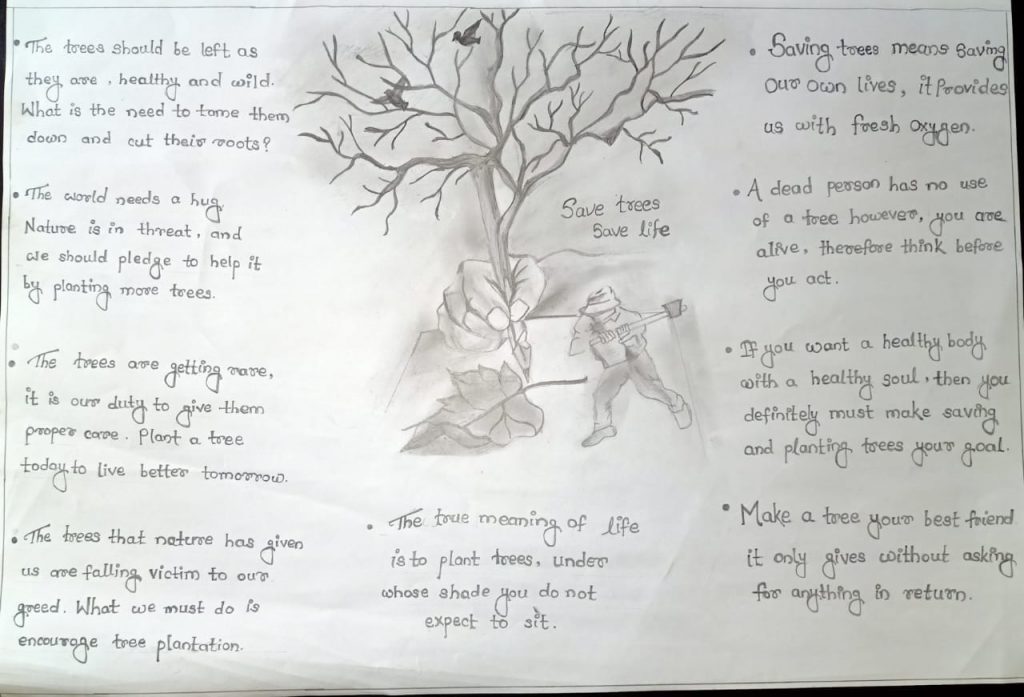 • The trees should be left as
they are, healthy and wild.
What is the need to tame them
down and cut their roots?
• The world needs a hug
Nature is in threat, and
we should pledge to help it
by planting more trees.
• The trees are getting rare,
it is our duty to give them
proper care. Plant a tree
today to live better tomorrow.
• The trees that nature has given
us are falling victim to our
greed. What we must do is
encourage tree plantation.
Save trees
Save life
• The true meaning of life
is to plant trees, under
whose shade you do not
expect to sit.
• Saving trees means saving
our own lives, it provides
us with fresh oxygen.
• A dead person has no use
of a tree however, you are
alive, therefore think before
you act.
• If you want a healthy body
with a healthy soul, then you
definitely must make saving
and planting trees your goal.
• Make a tree your best friend
it only gives without asking
for anything in return.